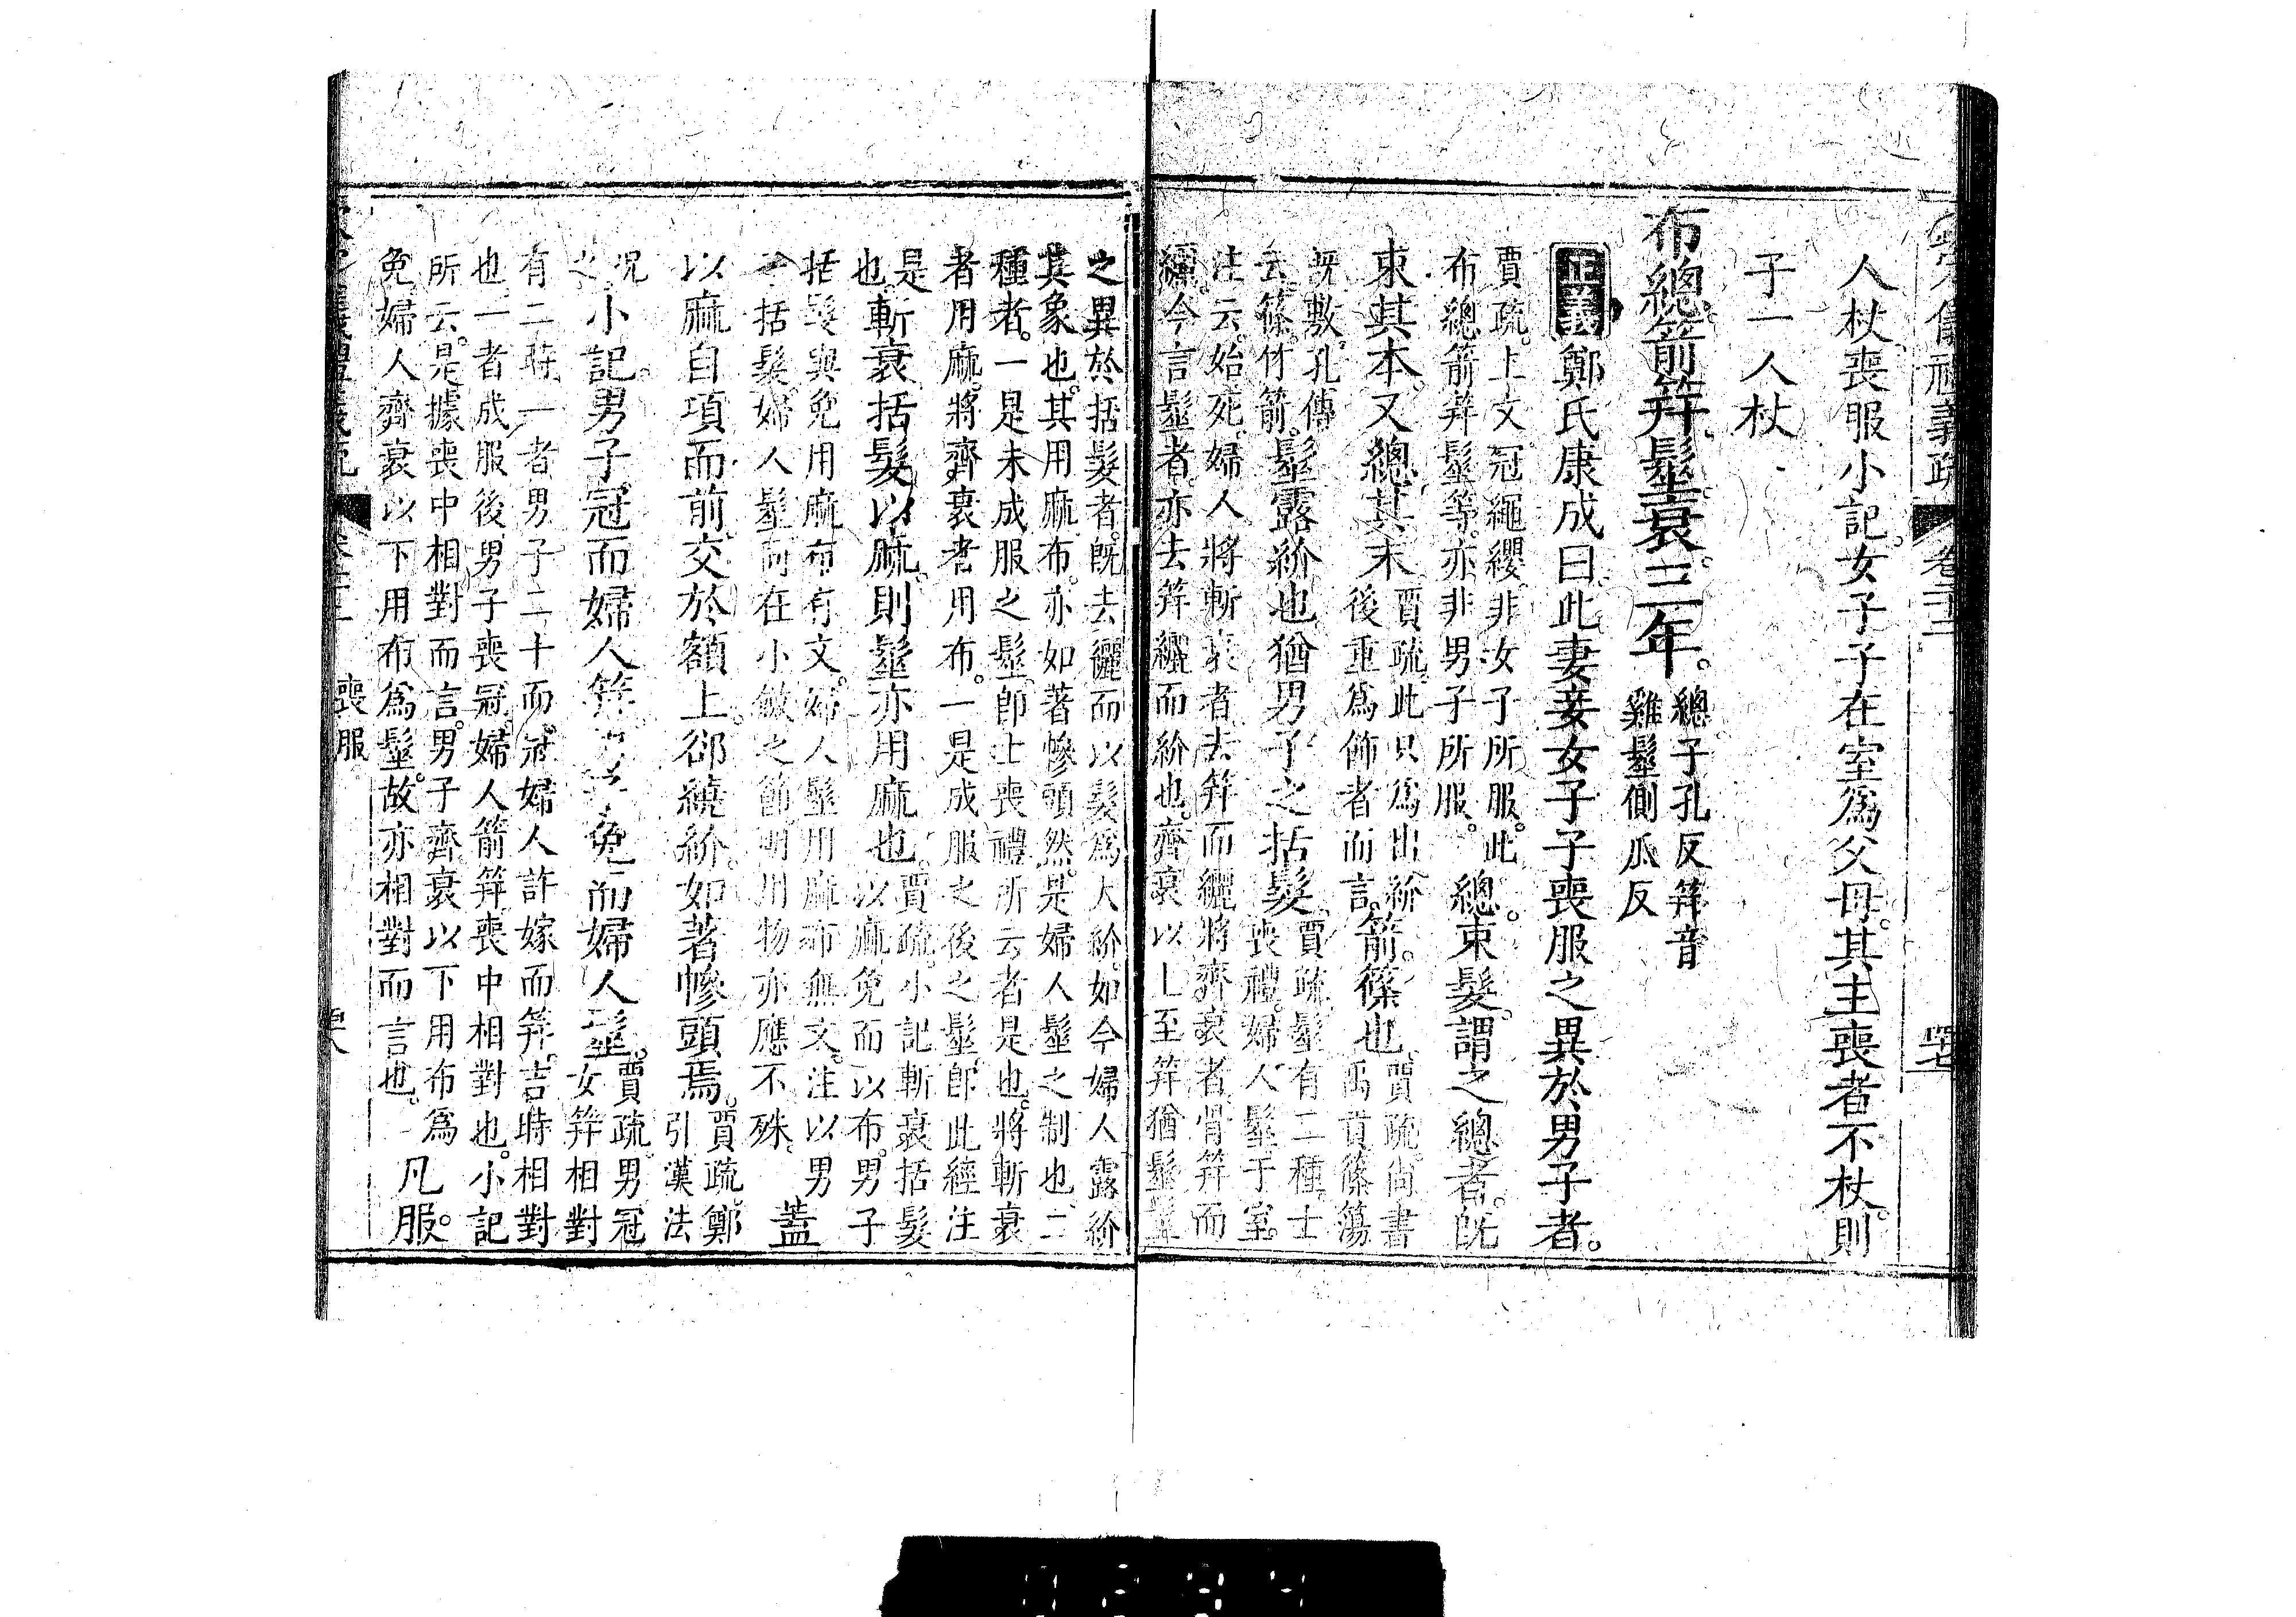 人杖喪服小記女子子在室爲父母其主喪者不杖則
子一人杖
布總箭笄髽衰三年。總子孔反笄音
雞髽側瓜反
正義鄭氏康成曰此妻妾女子子喪服之異於男子者。
賈疏上文冠繩纓非女子所服此
布總箭笄髽等亦非男子所服。
總束髮謂之總者既
束其本又總其末
賈疏此只爲出紒
後重爲飾者而言
箭篠也
賈疏尚書
禹貢篠簜
既敷孔傳
云篠竹箭
髽露紒也猶男子之括髮
賈疏髽有二種士
喪禮婦人髽于室
注云始死婦人將斬衰者去笄而纚將齊衰者骨笄而
纚今言髽者亦去笄纚而紒也齊衰以上至笄猶髽髽
之異於括髮者既去纚而以髮爲大紒如今婦人露紒
其象也其用麻布亦如著幓頭然是婦人髽之制也二
種者一是未成服之髽卽士喪禮所云者是也將斬衰
者用麻將齊衰者用布一是成服之後之髽卽此經注
是
也
斬衰括髮以麻則髽亦用麻也
賈疏小記斬衰括髮
以麻免而以布男子
括髮與免用麻布有文婦人髽用麻布無文注以男
子括髮婦人髽同在小斂之節明用物亦應不殊
蓋
以麻自項而前交於額上郤繞紒如著幓頭焉。
賈疏鄭
引漢法
况
之
小記男子冠而婦人笄男子免而婦人髽。
賈疏男冠
女笄相對
有二時一者男子二十而冠婦人許嫁而笄吉時相對
也一者成服後男子喪冠婦人箭笄喪中相對也小記
所云是據喪中相對而言男子齊衰以下用布爲
免婦人齊衰以下用布爲髽故亦相對而言也。
凡服。
喪服